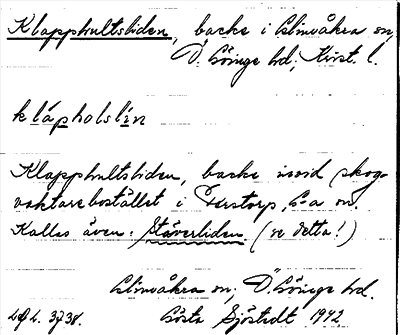 Klapphultsliden, backe i Glimåkra sn,
Ö. Göinge hd; Krist. l.
klápholslin
Klapphultsliden, backe invid skog-
vaktarebostället i Perstorp, G-a sn.
Kallas även: Stäverliden. (se detta!)
Glimåkra sn, Ö. Göinge hd.
Gösta Sjöstedt 1942.